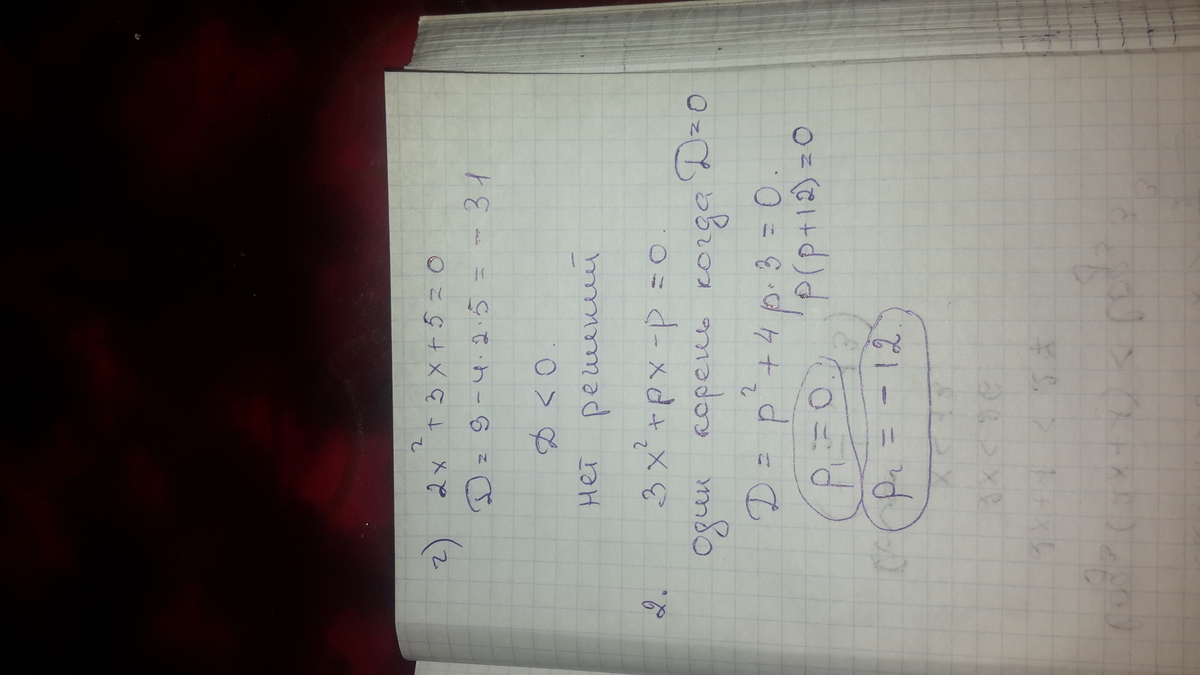 г) 2x² + 3x + 5 = 0
D = 9 - 4·2·5 = - 31
D < 0.
Нет решений
2. 3x² + px - p = 0.
один корень когда D = 0
D = p² + 4p·3 = 0.
p(p+12) = 0
p₁ = 0.
p₂ = - 12.